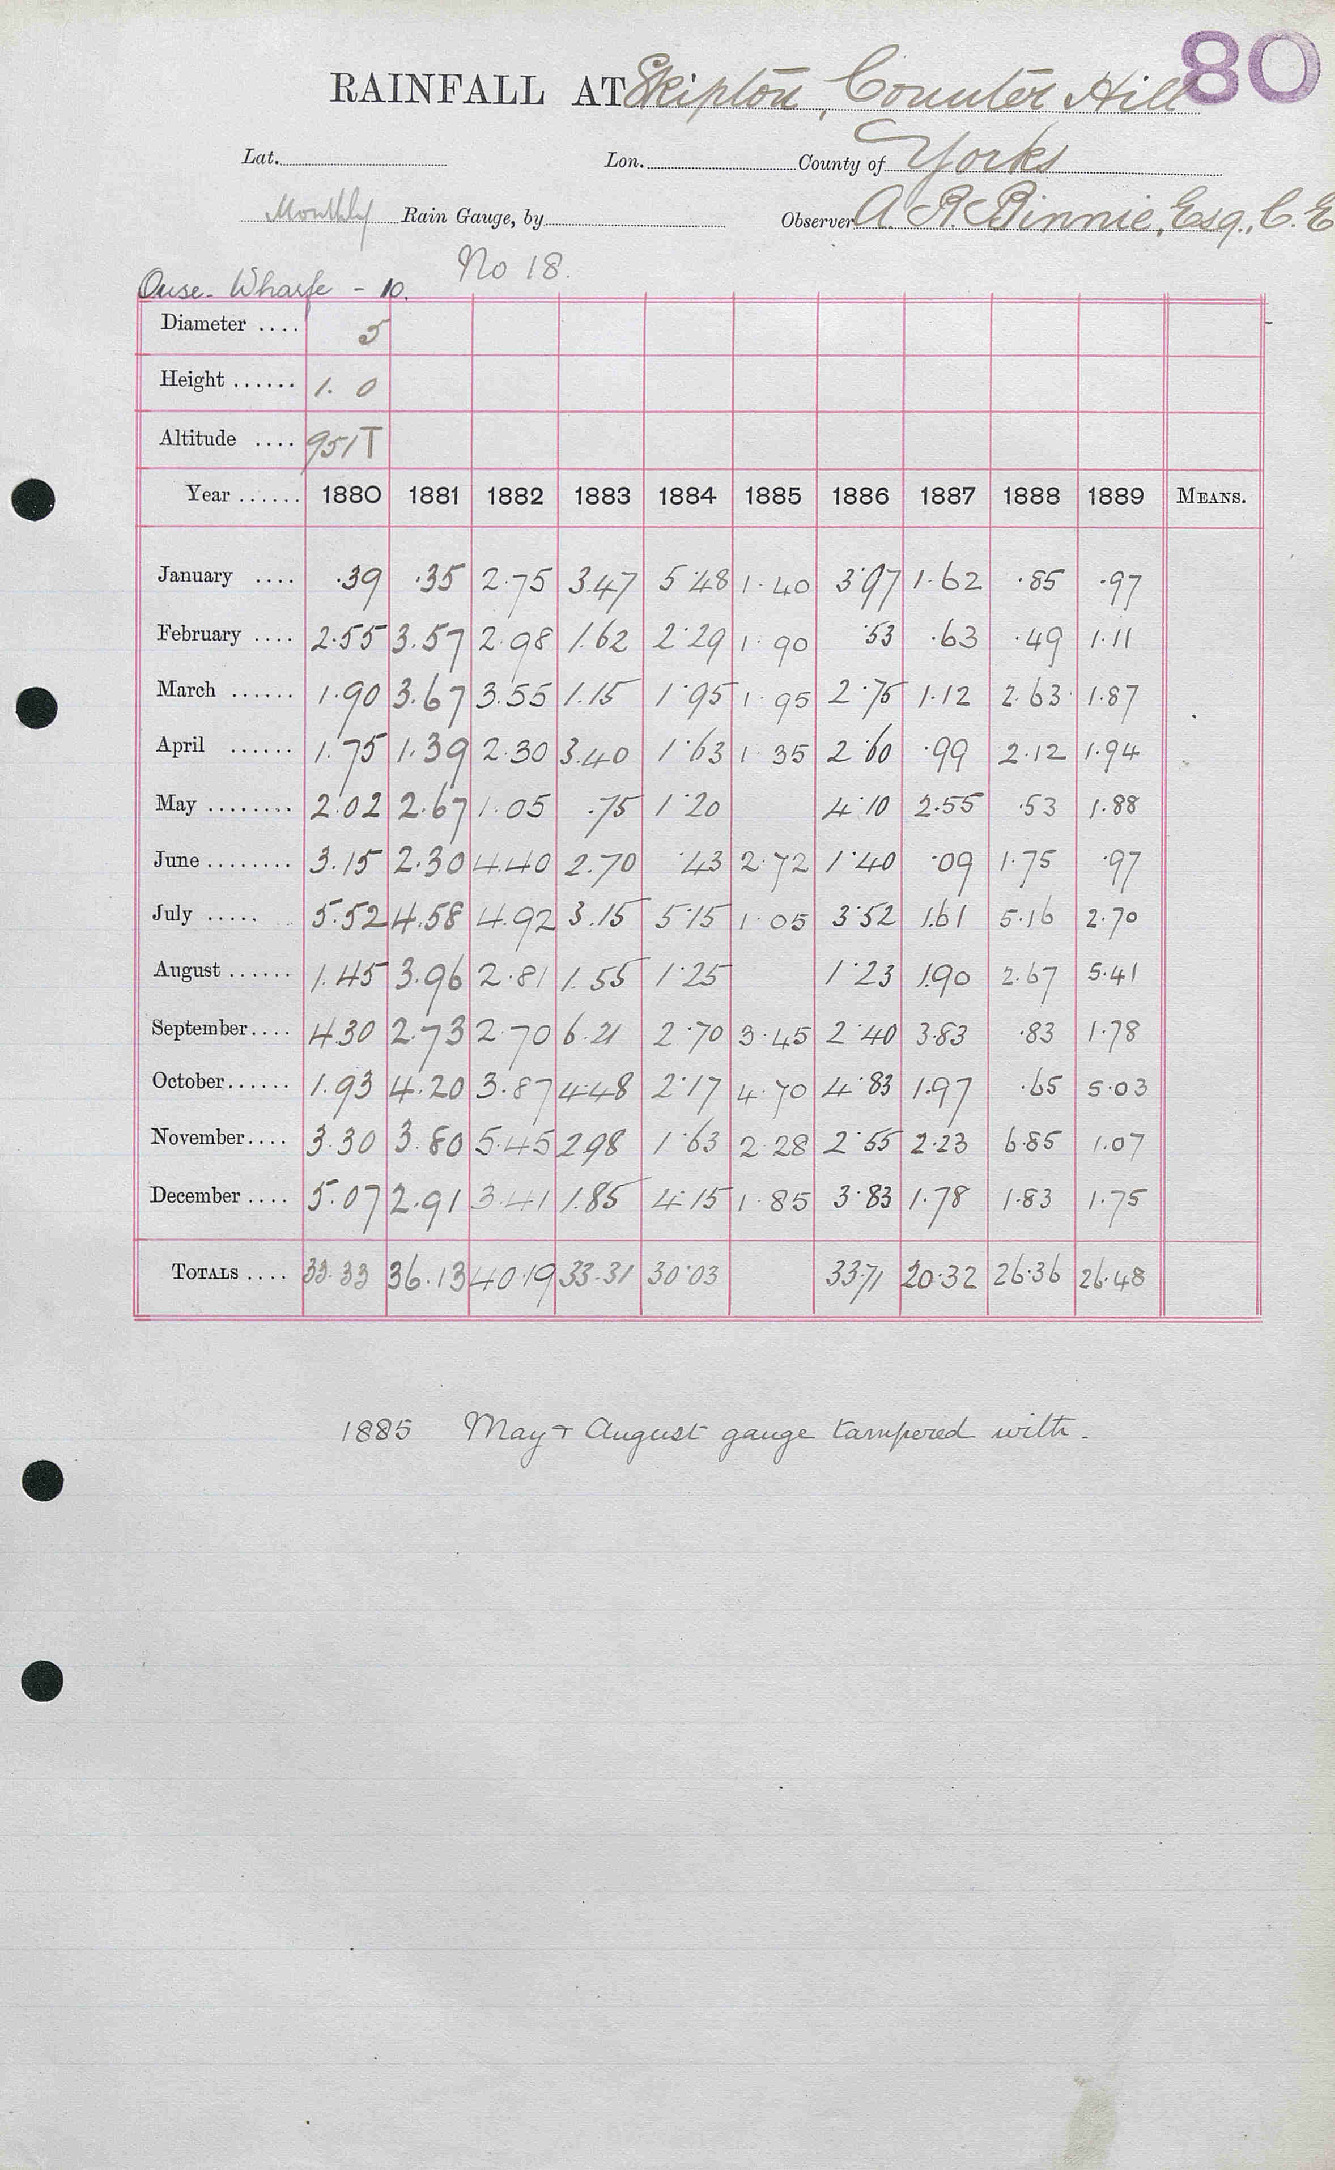 80
RAINFALL AT Skipton, Counter Hill
Lat. Lon. County of Yorks
Monthly Rain Gauge, by Observer A. R. Binnie, Esq., C.E
No 18.
Ouse - Wharfe - 10.
Diameter .... 5
Height ...... 1. 0
Altitude .... 951T
Year ...... 1880 1881 1882 1883 1884 1885 1886 1887 1888 1889 MEANS.
January .... .39 .35 2.75 3.47 5.48 1.40 3.97 1.62 .85 .97
February .... 2.55 3.57 2.98 1.62 2.29 1.90 .53 .63 .49 1.11
March ...... 1.90 3.67 3.55 1.15 1.95 1.95 2.75 1.12 2.63 1.87
April ...... 1.75 1.39 2.30 3.40 1.63 1.35 2.60 .99 2.12 1.94
May ........ 2.02 2.67 1.05 .75 1.20 4.10 2.55 .53 1.88
June ........ 3.15 2.30 4.40 2.70 .43 2.72 1.40 .09 1.75 .97
July ..... 5.52 4.58 4.92 3.15 5.15 1.05 3.52 1.61 5.16 2.70
August ...... 1.45 3.96 2.81 1.55 1.25 1.23 1.90 2.67 5.41
September.... 4.30 2.73 2.70 6.21 2.70 3.45 2.40 3.83 .83 1.78
October...... 1.93 4.20 3.87 4.48 2.17 4.70 4.83 1.97 .65 5.03
November.... 3.30 3.80 5.45 2.98 1.63 2.28 2.55 2.23 6.85 1.07
December .... 5.07 2.91 3.41 1.85 4.15 1.85 3.83 1.78 1.83 1.75
TOTALS .... 33.33 36.13 40.19 33.31 30.03 33.71 20.32 26.36 26.48
1885 May + August gauge tampered with.